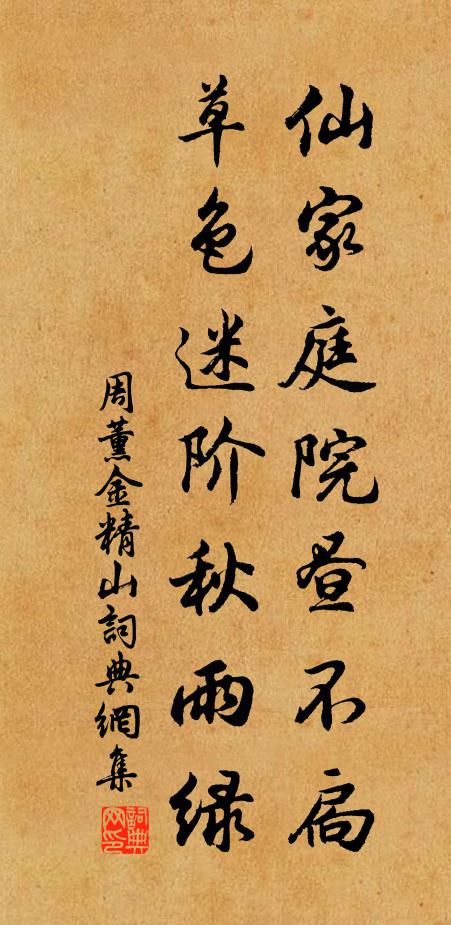 仙家庭院昼不扃
草色迷阶秋雨绿
周薰金精山詞典網集
詞典网印